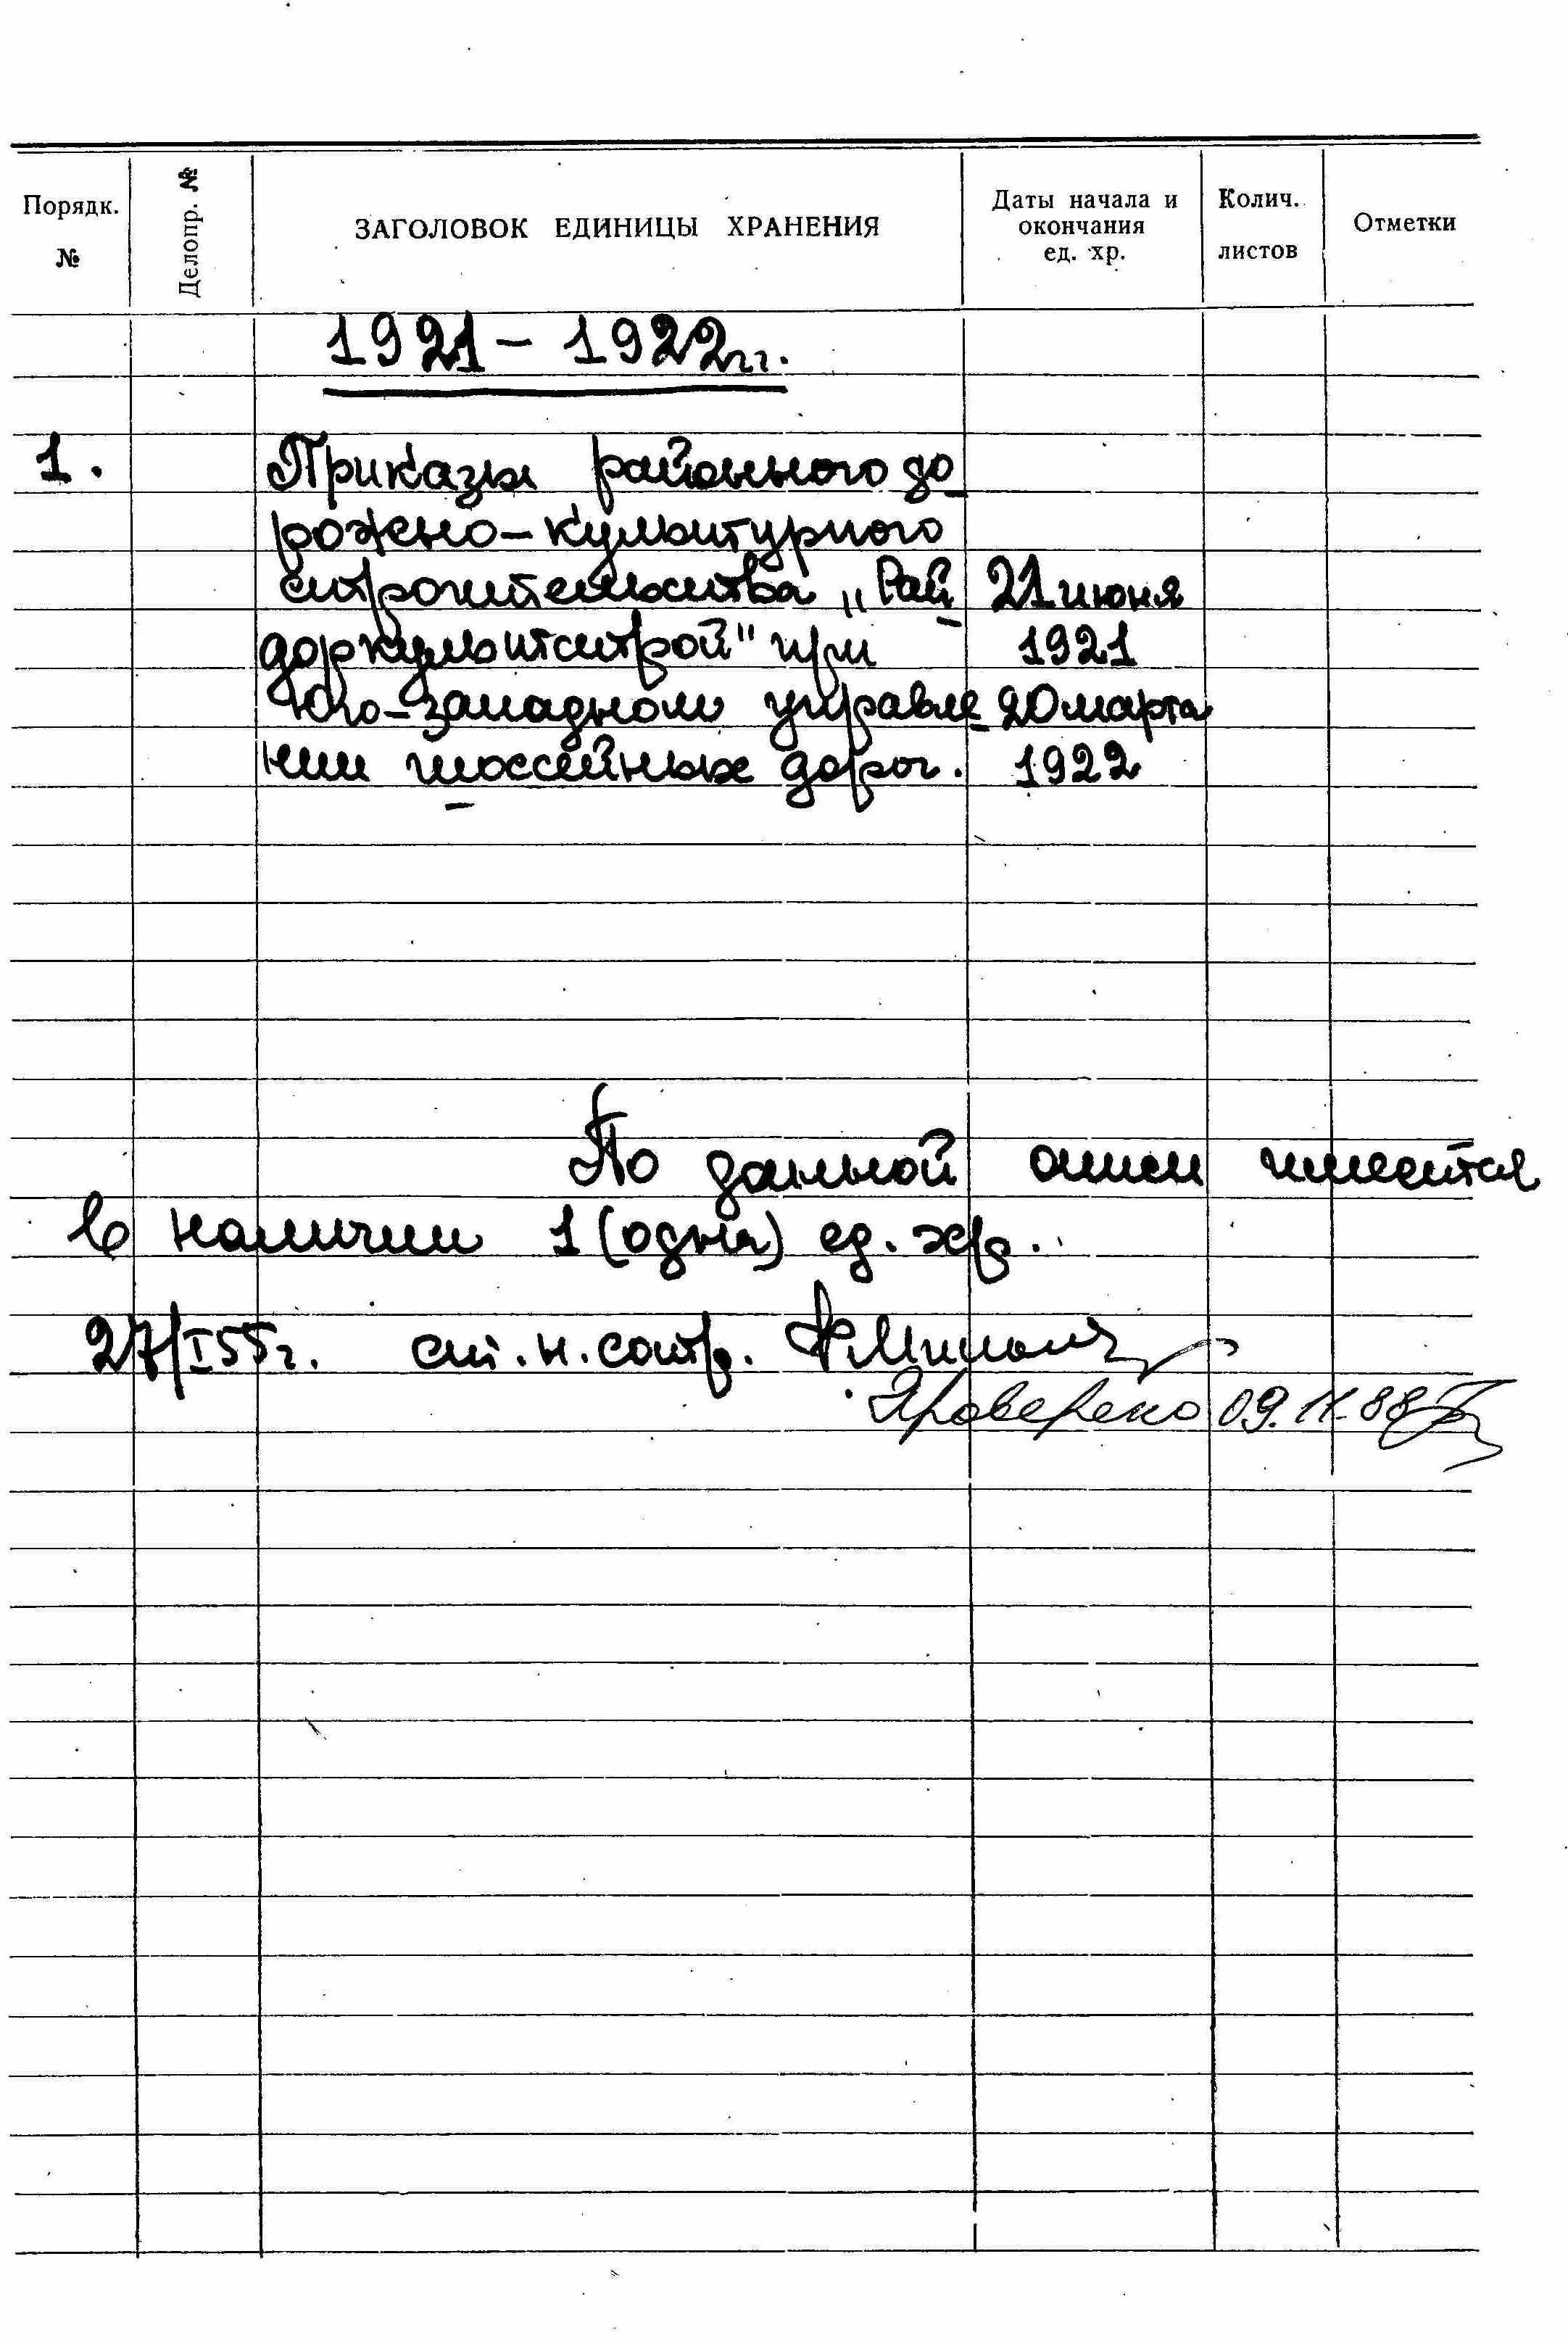 Порядк. №
Делопр. №
ЗАГОЛОВОК ЕДИНИЦЫ ХРАНЕНИЯ
Даты начала и окончания ед. хр.
Колич. листов
Отметки
1921 – 1922 гг.
1. Приказы районного до
рожно-культурного
строительства „Рай 21 июня
доркультстрой" при 1921
Юго-западном управле 20 марта
нии шоссейных дорог. 1922
По данной описи имеется
в наличии 1 (одна) ед. хр.
27/I 55 г. ст. н. сотр.
Проверено 09.11.88